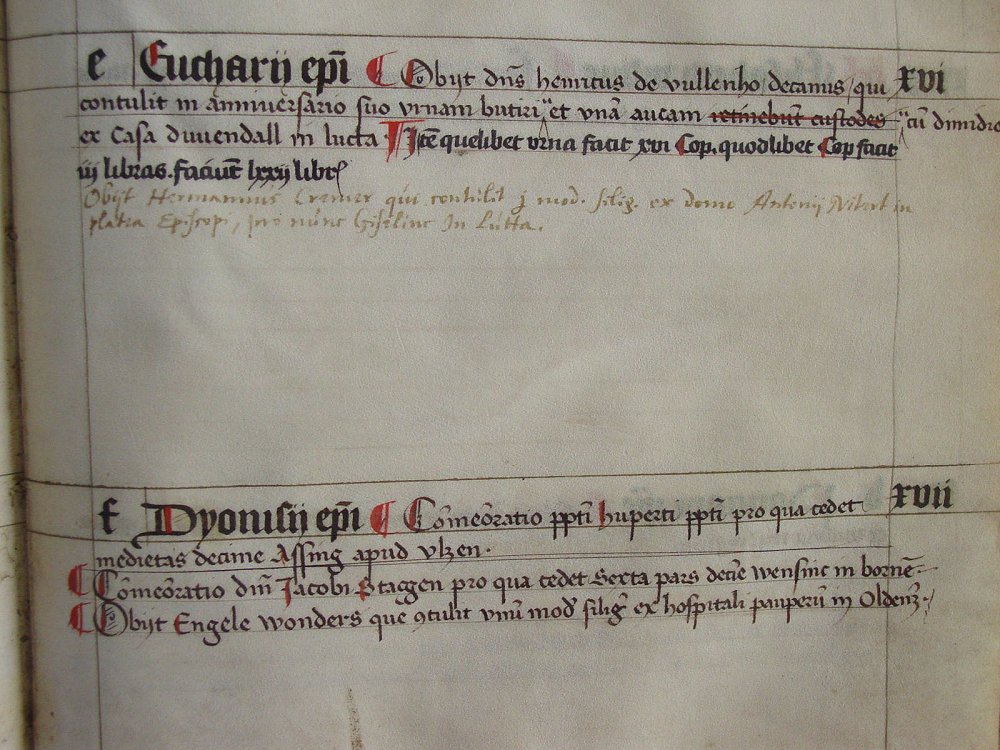 e Eucharij ep̄i ¶ Obijt dn̄s henricus de vullenho decanus / qui xvi
contulit in anniuersario suo vrnam butiri et vnā aucam retinebūt custodes cū dimidio
ex Casa duuendall in lucta Itē quelibet vrna facit xvi Cop. quodlibet Cop facit
iij libras. faciūt lxxij libr
Obijt Hermannus Cremer qui contulit j mod. silig. ex domo Antonij in
platea Episcopi, pro nunc Giseline In Lutta.
f Dyonisij ep̄i ¶ Cōmeōratio pp̄ti huperti pp̄ti pro qua cedet xvii
medietas decime Assing apud vlzen.
¶ Cōmeōratio dn̄i Jacobi Staggen pro qua cedet Sexta pars decīe wensinc in bornē
¶ Obijt Engele wonders que ꝯtulit vnū mod silig ex hospitali pauperū in Oldenz